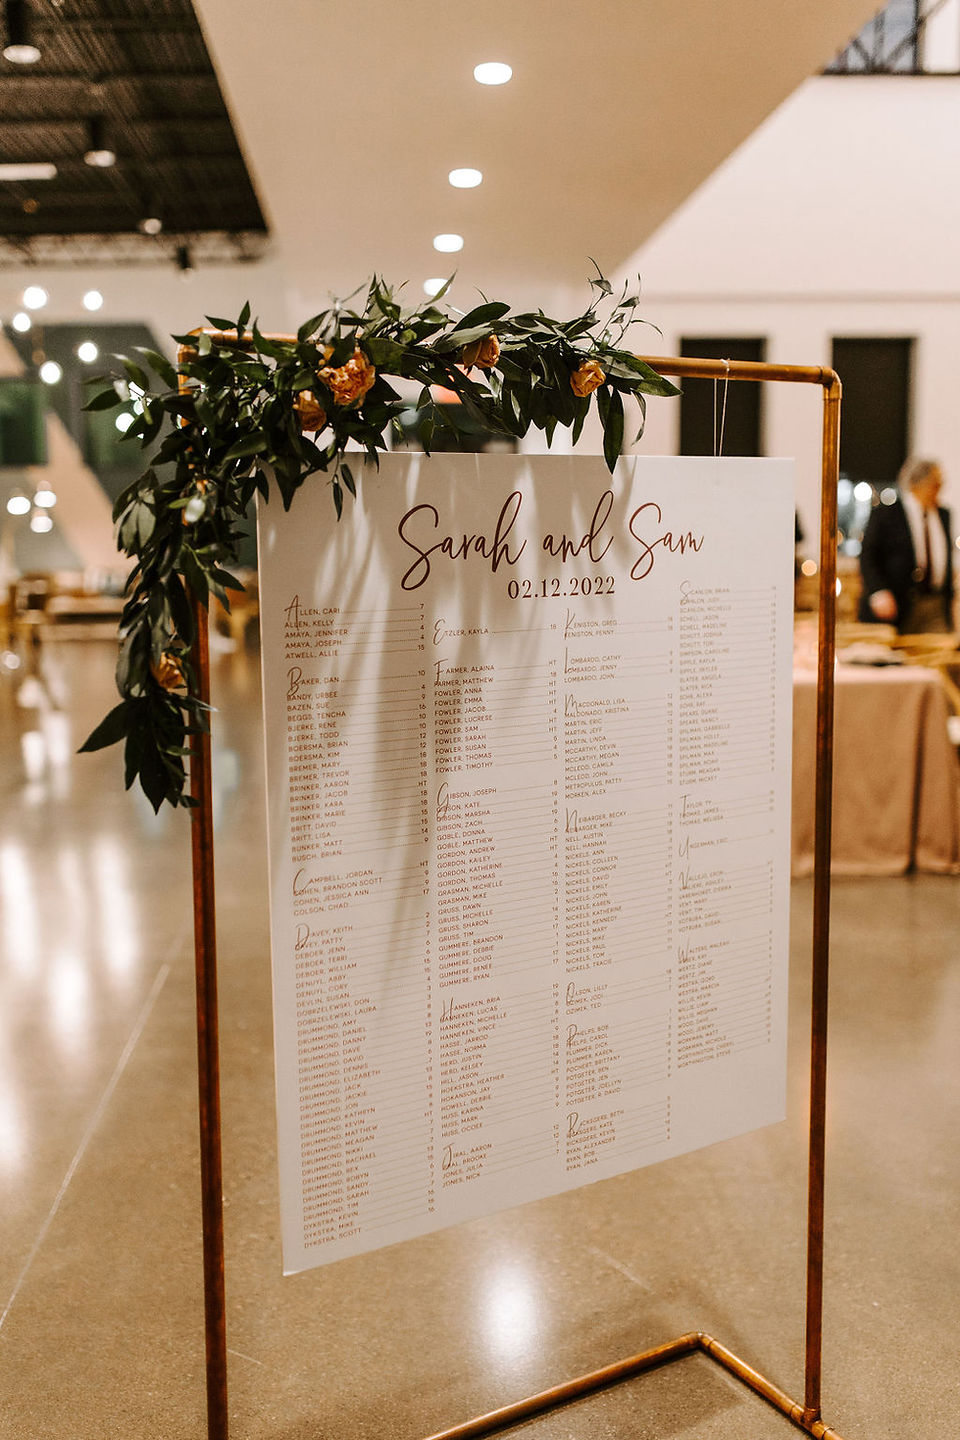 Sarah and Sam
02.12.2022
ALLEN, CARI 7
ALLEN, KELLY 7
AMAYA, JENNIFER 4
AMAYA, JOSEPH 4
ATWELL, ALLIE 15
BAKER, DAN 10
BANDY, URBEE 4
BAZEN, SUE 9
BEGGS, TENCHA 16
BJERKE, RENE 10
BJERKE, TODD 10
BOERSMA, BRIAN 12
BOERSMA, KIM 12
BREMER, MARY 18
BREMER, TREVOR 18
BRINKER, AARON HT
BRINKER, JACOB 18
BRINKER, KARA 18
BRINKER, MARIE
BRITT, DAVID 15
BRITT, LISA 14
BUNKER, MATT 9
BUSCH, BRIAN 8
CAMPBELL, JORDAN HT
COHEN, BRANDON SCOTT 9
COHEN, JESSICA ANN 9
COLSON, CHAD 17
DAVEY, KEITH 2
DAVEY, PATTY 2
DEBOER, JENN 6
DEBOER, TERRI
DEBOER, WILLIAM
DENUYL, ABBY
DENUYL, CORY
DEVLIN, SUSAN
DOBRZELEWSKI, DON
DOBRZELEWSKI, LAURA
DRUMMOND, AMY
DRUMMOND, DANIEL
DRUMMOND, DANNY
DRUMMOND, DAVE
DRUMMOND, DAVID
DRUMMOND, DENNIS
DRUMMOND, ELIZABETH
DRUMMOND, JACK
DRUMMOND, JACKIE
DRUMMOND, JON
DRUMMOND, KATHRYN
DRUMMOND, KEVIN
DRUMMOND, MATTHEW
DRUMMOND, MEAGAN
DRUMMOND, NIKKI
DRUMMOND, RACHAEL
DRUMMOND, REX
DRUMMOND, ROBYN
DRUMMOND, SANDY
DRUMMOND, SARAH
DRUMMOND, TIM
DYKSTRA, KEVIN
DYKSTRA, MIKE
DYKSTRA, SCOTT
ETZLER, KAYLA 16
FARMER, ALAINA HT
FARMER, MATTHEW 18
FOWLER, ANNA HT
FOWLER, EMMA HT
FOWLER, JACOB
FOWLER, LUCRESE
FOWLER, SAM HT
FOWLER, SARAH 5
FOWLER, SUSAN 4
FOWLER, THOMAS 5
FOWLER, TIMOTHY
GIBSON, JOSEPH 19
GIBSON, KATE 8
GIBSON, MARSHA 19
GIBSON, ZACH 8
GOBLE, DONNA 6
GOBLE, MATTHEW 6
GORDON, ANDREW HT
GORDON, KAILEY 4
GORDON, KATHERINE 4
GORDON, THOMAS
GRASMAN, MICHELLE 16
GRASMAN, MIKE 2
GRUSS, DAWN
GRUSS, MICHELLE 14
GRUSS, SHARON
GRUSS, TIM
GUMMERE, BRANDON
GUMMERE, DEBBIE
GUMMERE, DOUG
GUMMERE, RENEE
GUMMERE, RYAN
HANNEKEN, BRIA 19
HANNEKEN, LUCAS 19
HANNEKEN, MICHELLE 8
HANNEKEN, VINCE
HASSE, JARROD
HASSE, NORMA
HERD, JUSTIN
HERD, KELSEY
HILL, JASON
HOEKSTRA, HEATHER
HOKANSON, JAY
HOWELL, DEBBIE
HUSS, KARINA
HUSS, MARK
HUSS, OCDEE
JIRAL, AARON 12
JIRAL, BROOKE 12
JONES, JULIA 7
JONES, NICK 7
KENISTON, GREG
KENISTON, PENNY
LOMBARDO, CATHY
LOMBARDO, JENNY
LOMBARDO, JOHN
MACDONALD, LISA
MALDONADO, KRISTINA
MARTIN, ERIC
MARTIN, JEFF
MARTIN, LINDA
MCCARTHY, DEVIN
MCCARTHY, MEGAN
MCLEOD, CAMILA
MCLEOD, JOHN
METROPULUS, PATTY
MORKEN, ALEX
NEIBARGER, BECKY
NEIBARGER, MIKE
NELL, AUSTIN
NELL, HANNAH
NICKELS, ANN
NICKELS, COLLEEN
NICKELS, CONNOR
NICKELS, DAVID
NICKELS, EMILY
NICKELS, JOHN
NICKELS, KAREN
NICKELS, KATHERINE
NICKELS, KENNEDY
NICKELS, MARY
NICKELS, MIKE
NICKELS, PAUL
NICKELS, TOM
NICKELS, TRACIE
OLSON, LILLY
OZIMEK, JODI
OZIMEK, TED
PHELPS, BOB
PHELPS, CAROL
PLUMMER, DICK
PLUMMER, KAREN
POCHERT, BRITTANY
POTGETER, BEN
POTGETER, JEN
POTGETER, JOELLYN
POTGETER, R. DAVID
RICKSGERS, BETH
RICKSGERS, KATE
RICKSGERS, KEVIN
RYAN, ALEXANDER
RYAN, BOB
RYAN, JANA
SCANLON, BRIAN
SCANLON, JUDY
SCANLON, MICHELLE
SCHELL, JASON
SCHELL, MADELINE
SCHUTT, JOSHUA
SCHUTT, TORI
SIMPSON, CAROLINE
SIPPLE, KAYLA
SIPPLE, SKYLER
SLATER, ANGELA
SLATER, RICK
SOHR, ALEXA
SOHR, RAY
SPEARS, DUANE
SPEARS, NANCY
SPILMAN, GABRIELLE
SPILMAN, HOLLY
SPILMAN, MADELINE
SPILMAN, MAX
SPILMAN, NOAH
STURM, MEAGAN
STURM, MICKEY
TAYLOR, TY
THOMAS, JAMES
THOMAS, MELISSA
UNGERMAN, ERIC
VALLEJO, LEON
VENT, MARY
VENT, TIM
VOTRUBA, DAVID
VOTRUBA, SUSAN
WALTERS, MALEAH
WEBER, KAY
WERTZ, DIANE
WERTZ, JIM
WESTRA, GORD
WESTRA, MARCIA
WILLIS, KEVIN
WILLIS, LIAM
WILLIS, MEGHAN
WOOD, DAVE
WOOD, JEREMY
WORKMAN, MATT
WORKMAN, NICHOLE
WORTHINGTON, CHERYL
WORTHINGTON, STEVE